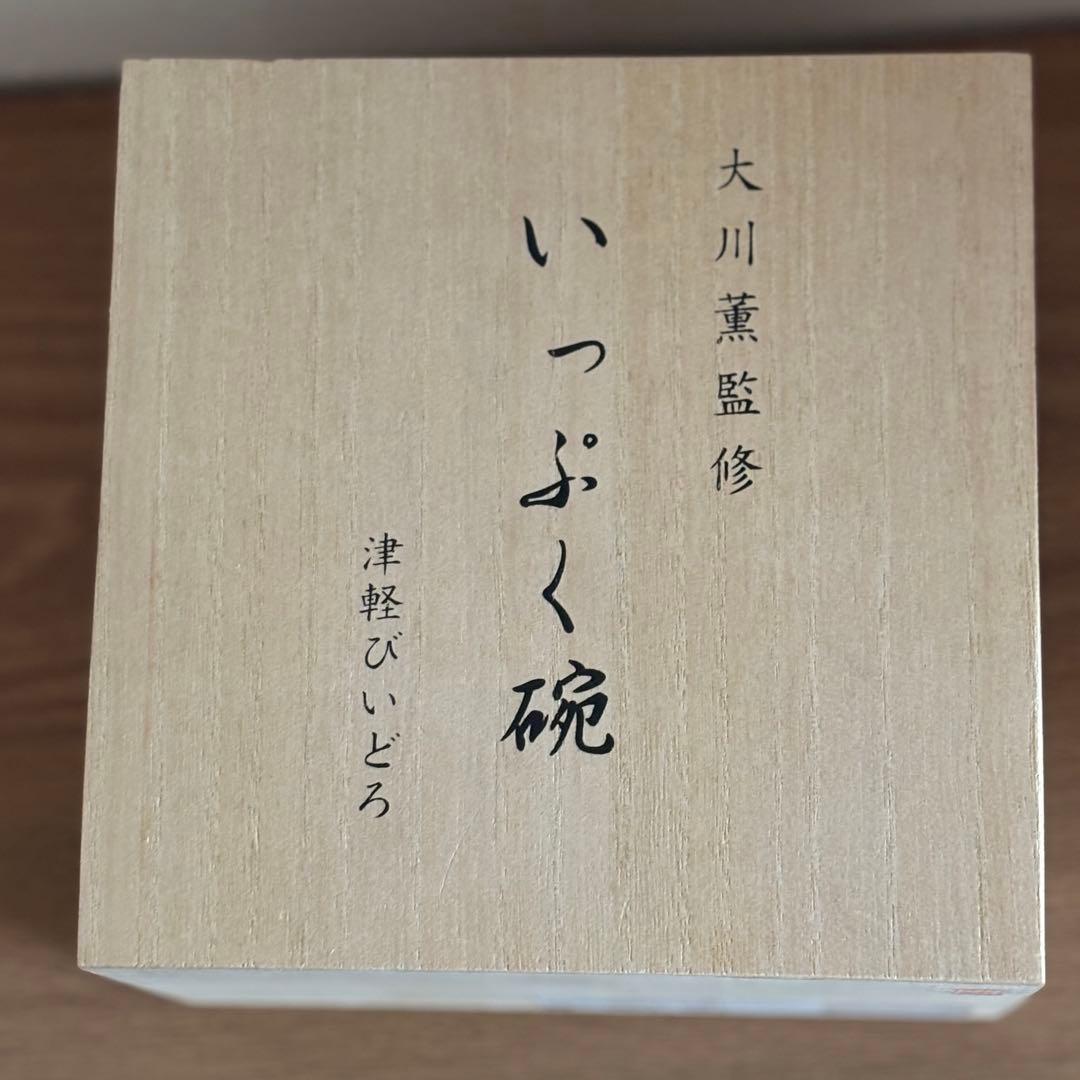 大川薫監修
いっぷく碗
津軽びいどろ